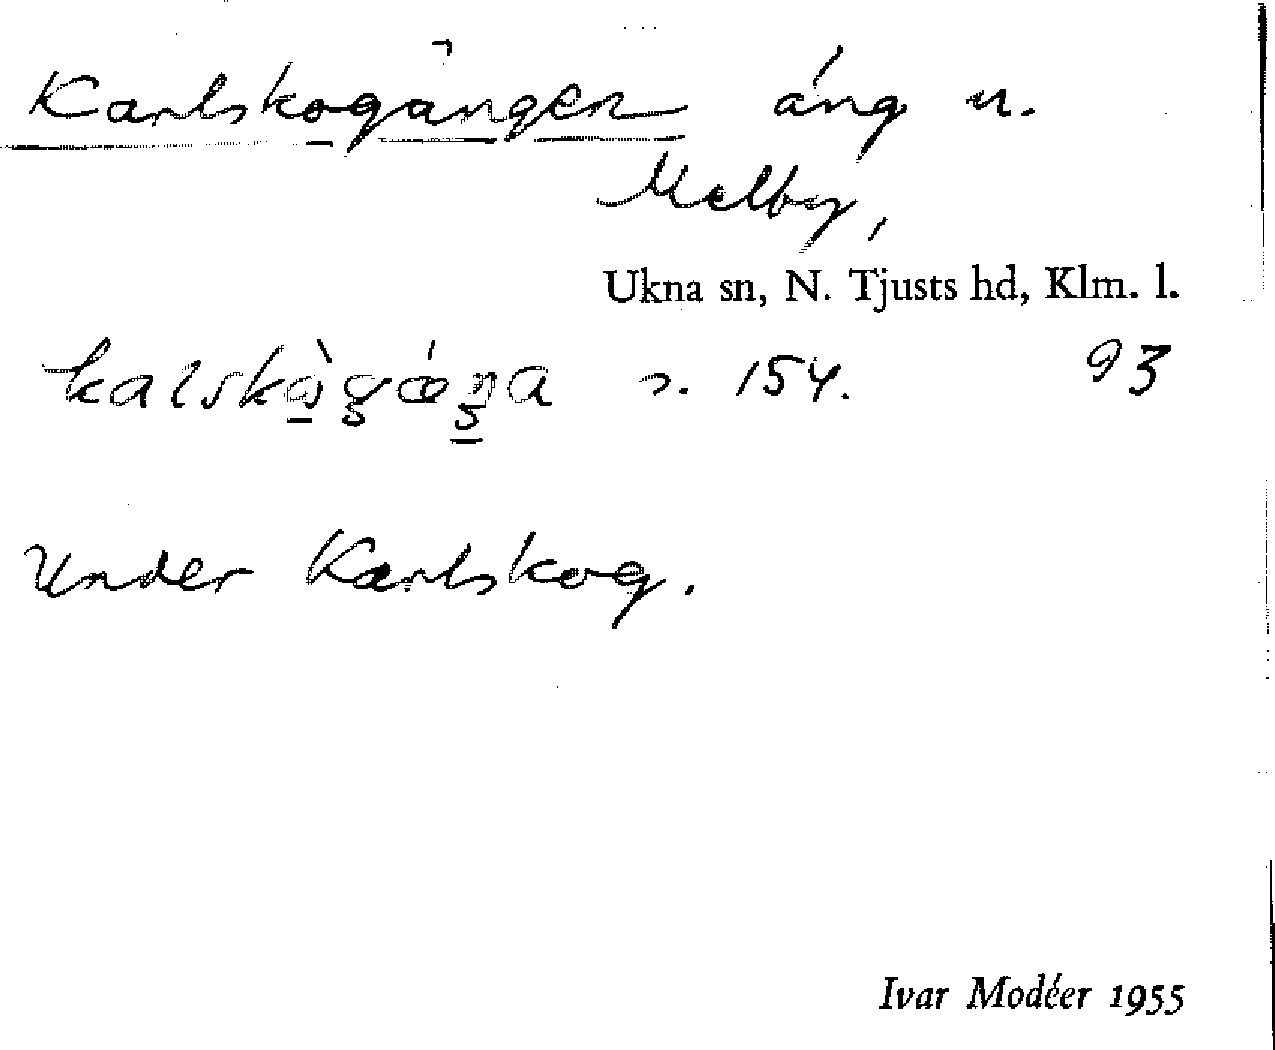 Karlskogängen äng u.
Melby,
Ukna sn, N. Tjusts hd, Klm. l.
s. 154. 93
Under Karlskog.
Ivar Modéer 1955